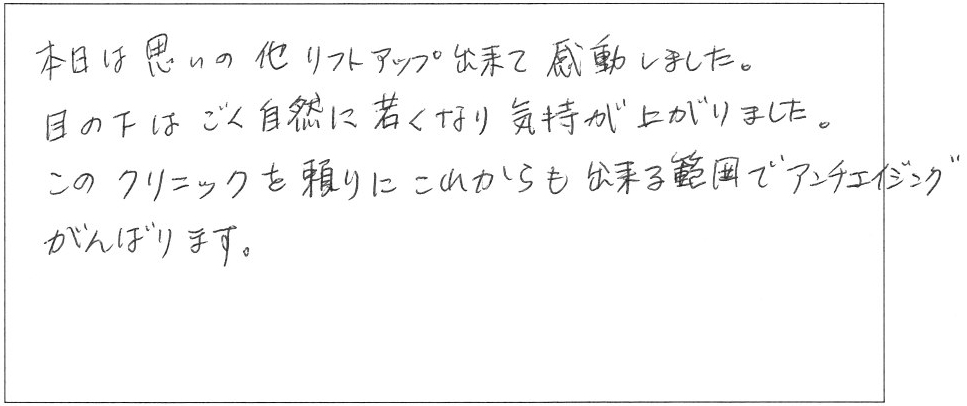 本日は思いの他リフトアップ出来て感動しました。
目の下はごく自然に若くなり気持が上がりました。
このクリニックを頼りにこれからも出来る範囲でアンチエイジング
がんばります。